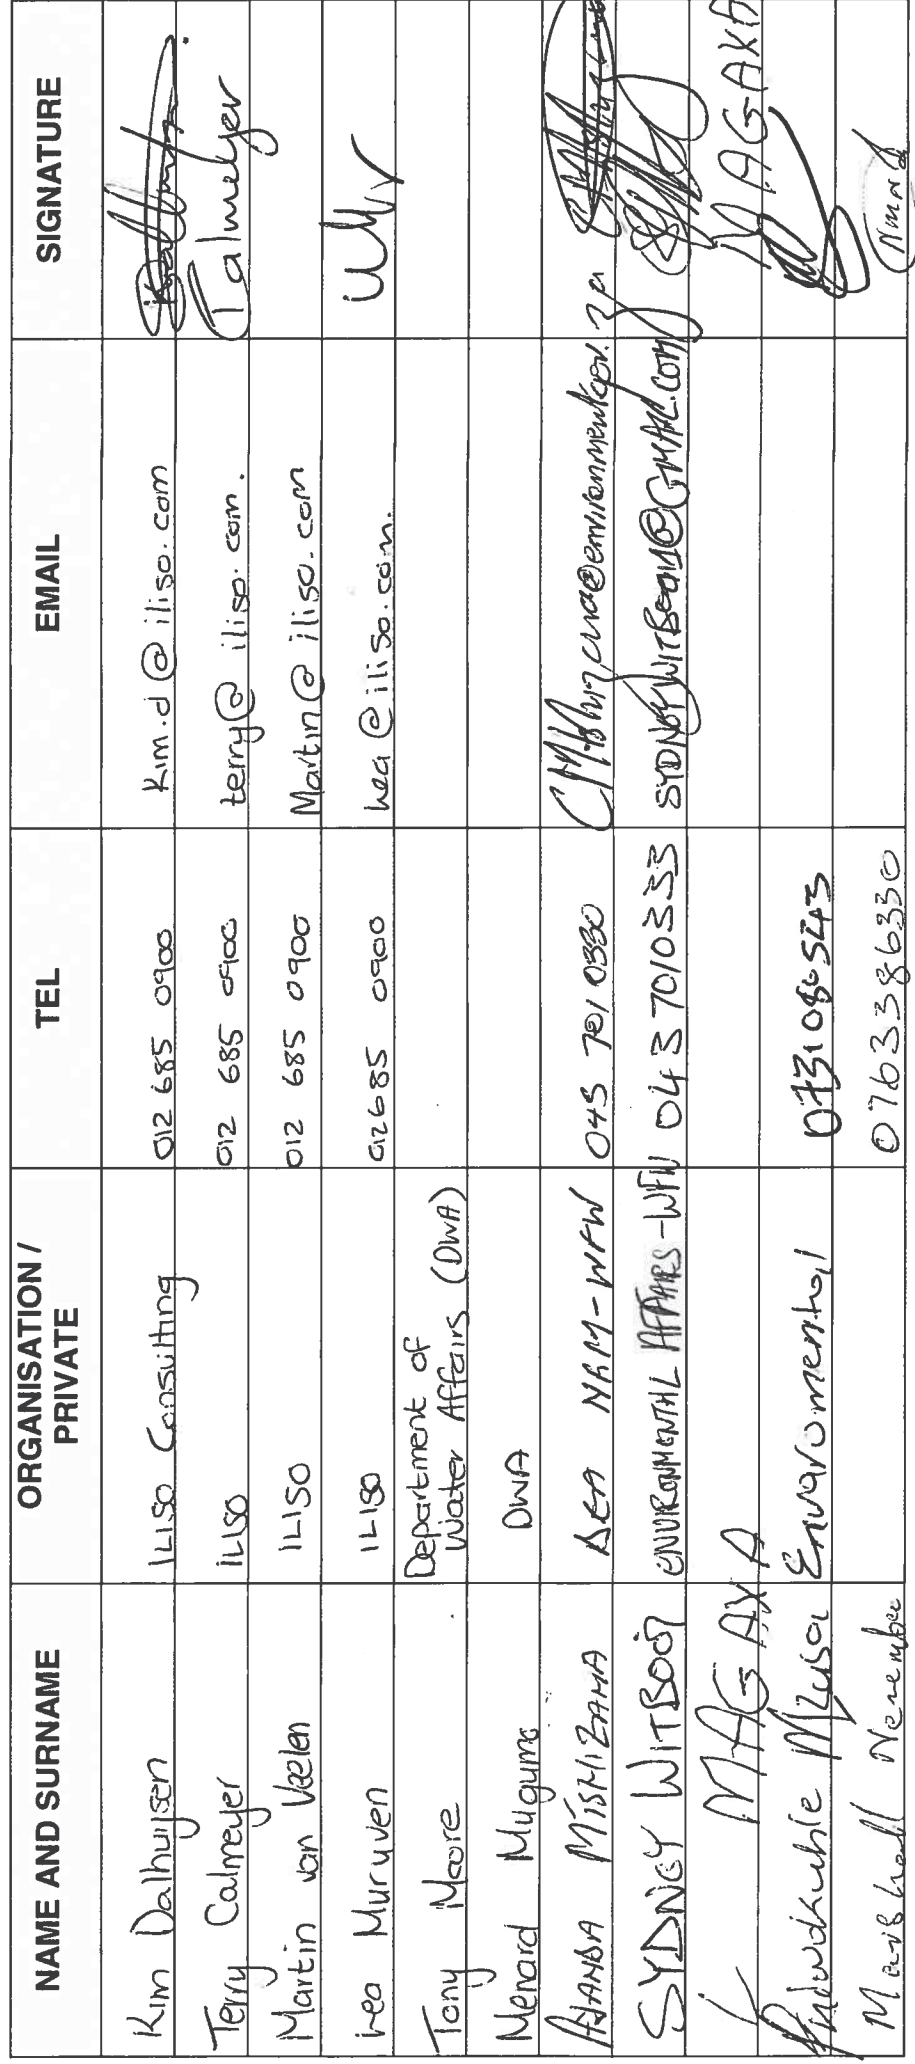 NAME AND SURNAME ORGANISATION / PRIVATE TEL EMAIL SIGNATURE
Kim Dalhuijsen ILISO Consulting 012 685 0900 Kim.d@iliso.com
Terry Calmeyer ILISO 012 685 0900 terry@iliso.com. Talmeyer
Martin van Veelen ILISO 012 685 0900 Martin@iliso.com
Lea Muruven ILISO 012685 0900 lea@iliso.com.
Tony Moore Department of Water Affairs (DWA)
Menard Mugumo DWA
AYANDA DEA NRM-WFW 043 701 0330
SYDNEY WITBOOI ENVIRONMENTAL AFFAIRS-WFW 043 7010333 SYDNEYWITBOOI1@GMAIL.COM
K MAGAXA MAGAXA
Mzusa Envaromental 0731085543
Marshall 0763386330